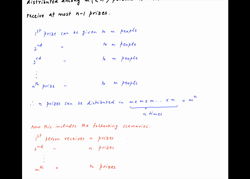 distributed among m (<n) persons
receive at most n-1 prizes.
1st prize can be given to m people
2nd " to m people
3rd " to m people
⋮
nth " to m people
∴ n prizes can be distributed in m×m×m ... ×m = mⁿ
n times
Now this includes the following scenarios:
1st person receives n prizes
2nd " n prizes
⋮
mth " n prizes